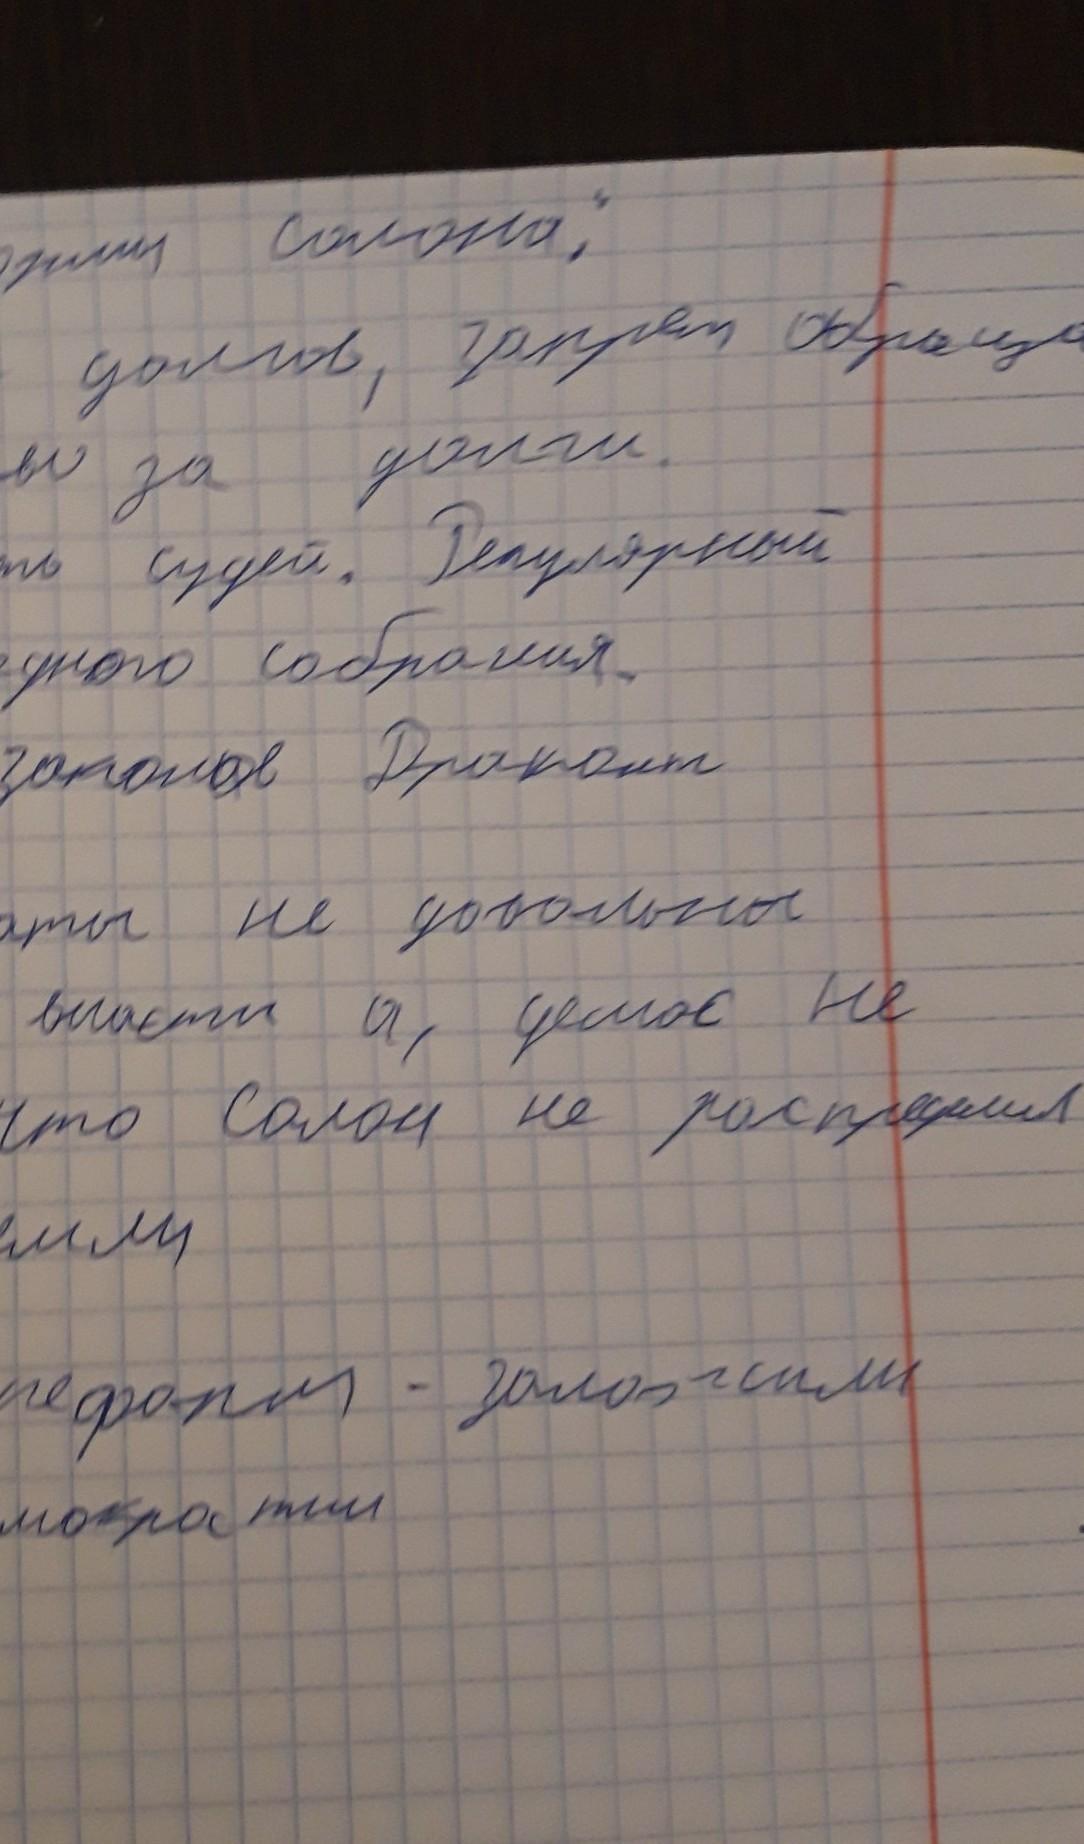 Солона;"
долгов, запрет обраща
за долги.
судей. Регулярный
дного собрания.
законов Драконт
аты не довольны
власти а, демос не
что Солон не распределил
емли
реформ - заложили
мократии